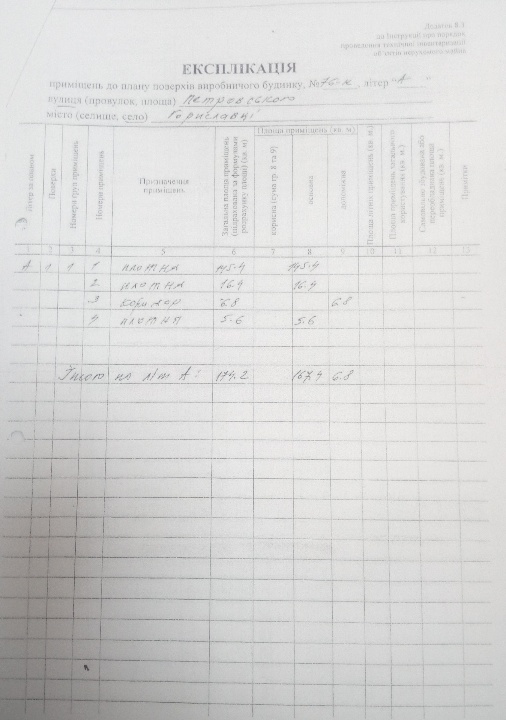 Додаток 8.3
до Інструкції про порядок
проведення технічної інвентаризації
об'єктів нерухомого майна
ЕКСПЛІКАЦІЯ
приміщень до плану поверхів виробничого будинку, № 76-к, літер "А"
вулиця (провулок, площа) Петровського
місто (селище, село) Гориславці
Літер за планом
Поверхи
Номери груп приміщень
Номери приміщень
Призначення приміщень
Загальна площа приміщень (підрахована за формулами розрахунку площі) (кв. м)
Площа приміщень (кв. м)
корисна (сума гр. 8 та 9)
основна
допоміжна
Площа літніх приміщень (кв. м.)
Площа приміщень загального користування (кв. м.)
Самовільно збудована або переобладнана площа приміщень (кв. м.)
Примітки
1 2 3 4 5 6 7 8 9 10 11 12 13
А 1 1 1 145.4 145.4
2 16.4 16.4
3 коридор 6.8 6.8
4 5.6 5.6
по літ А: 174.2 167.4 6.8